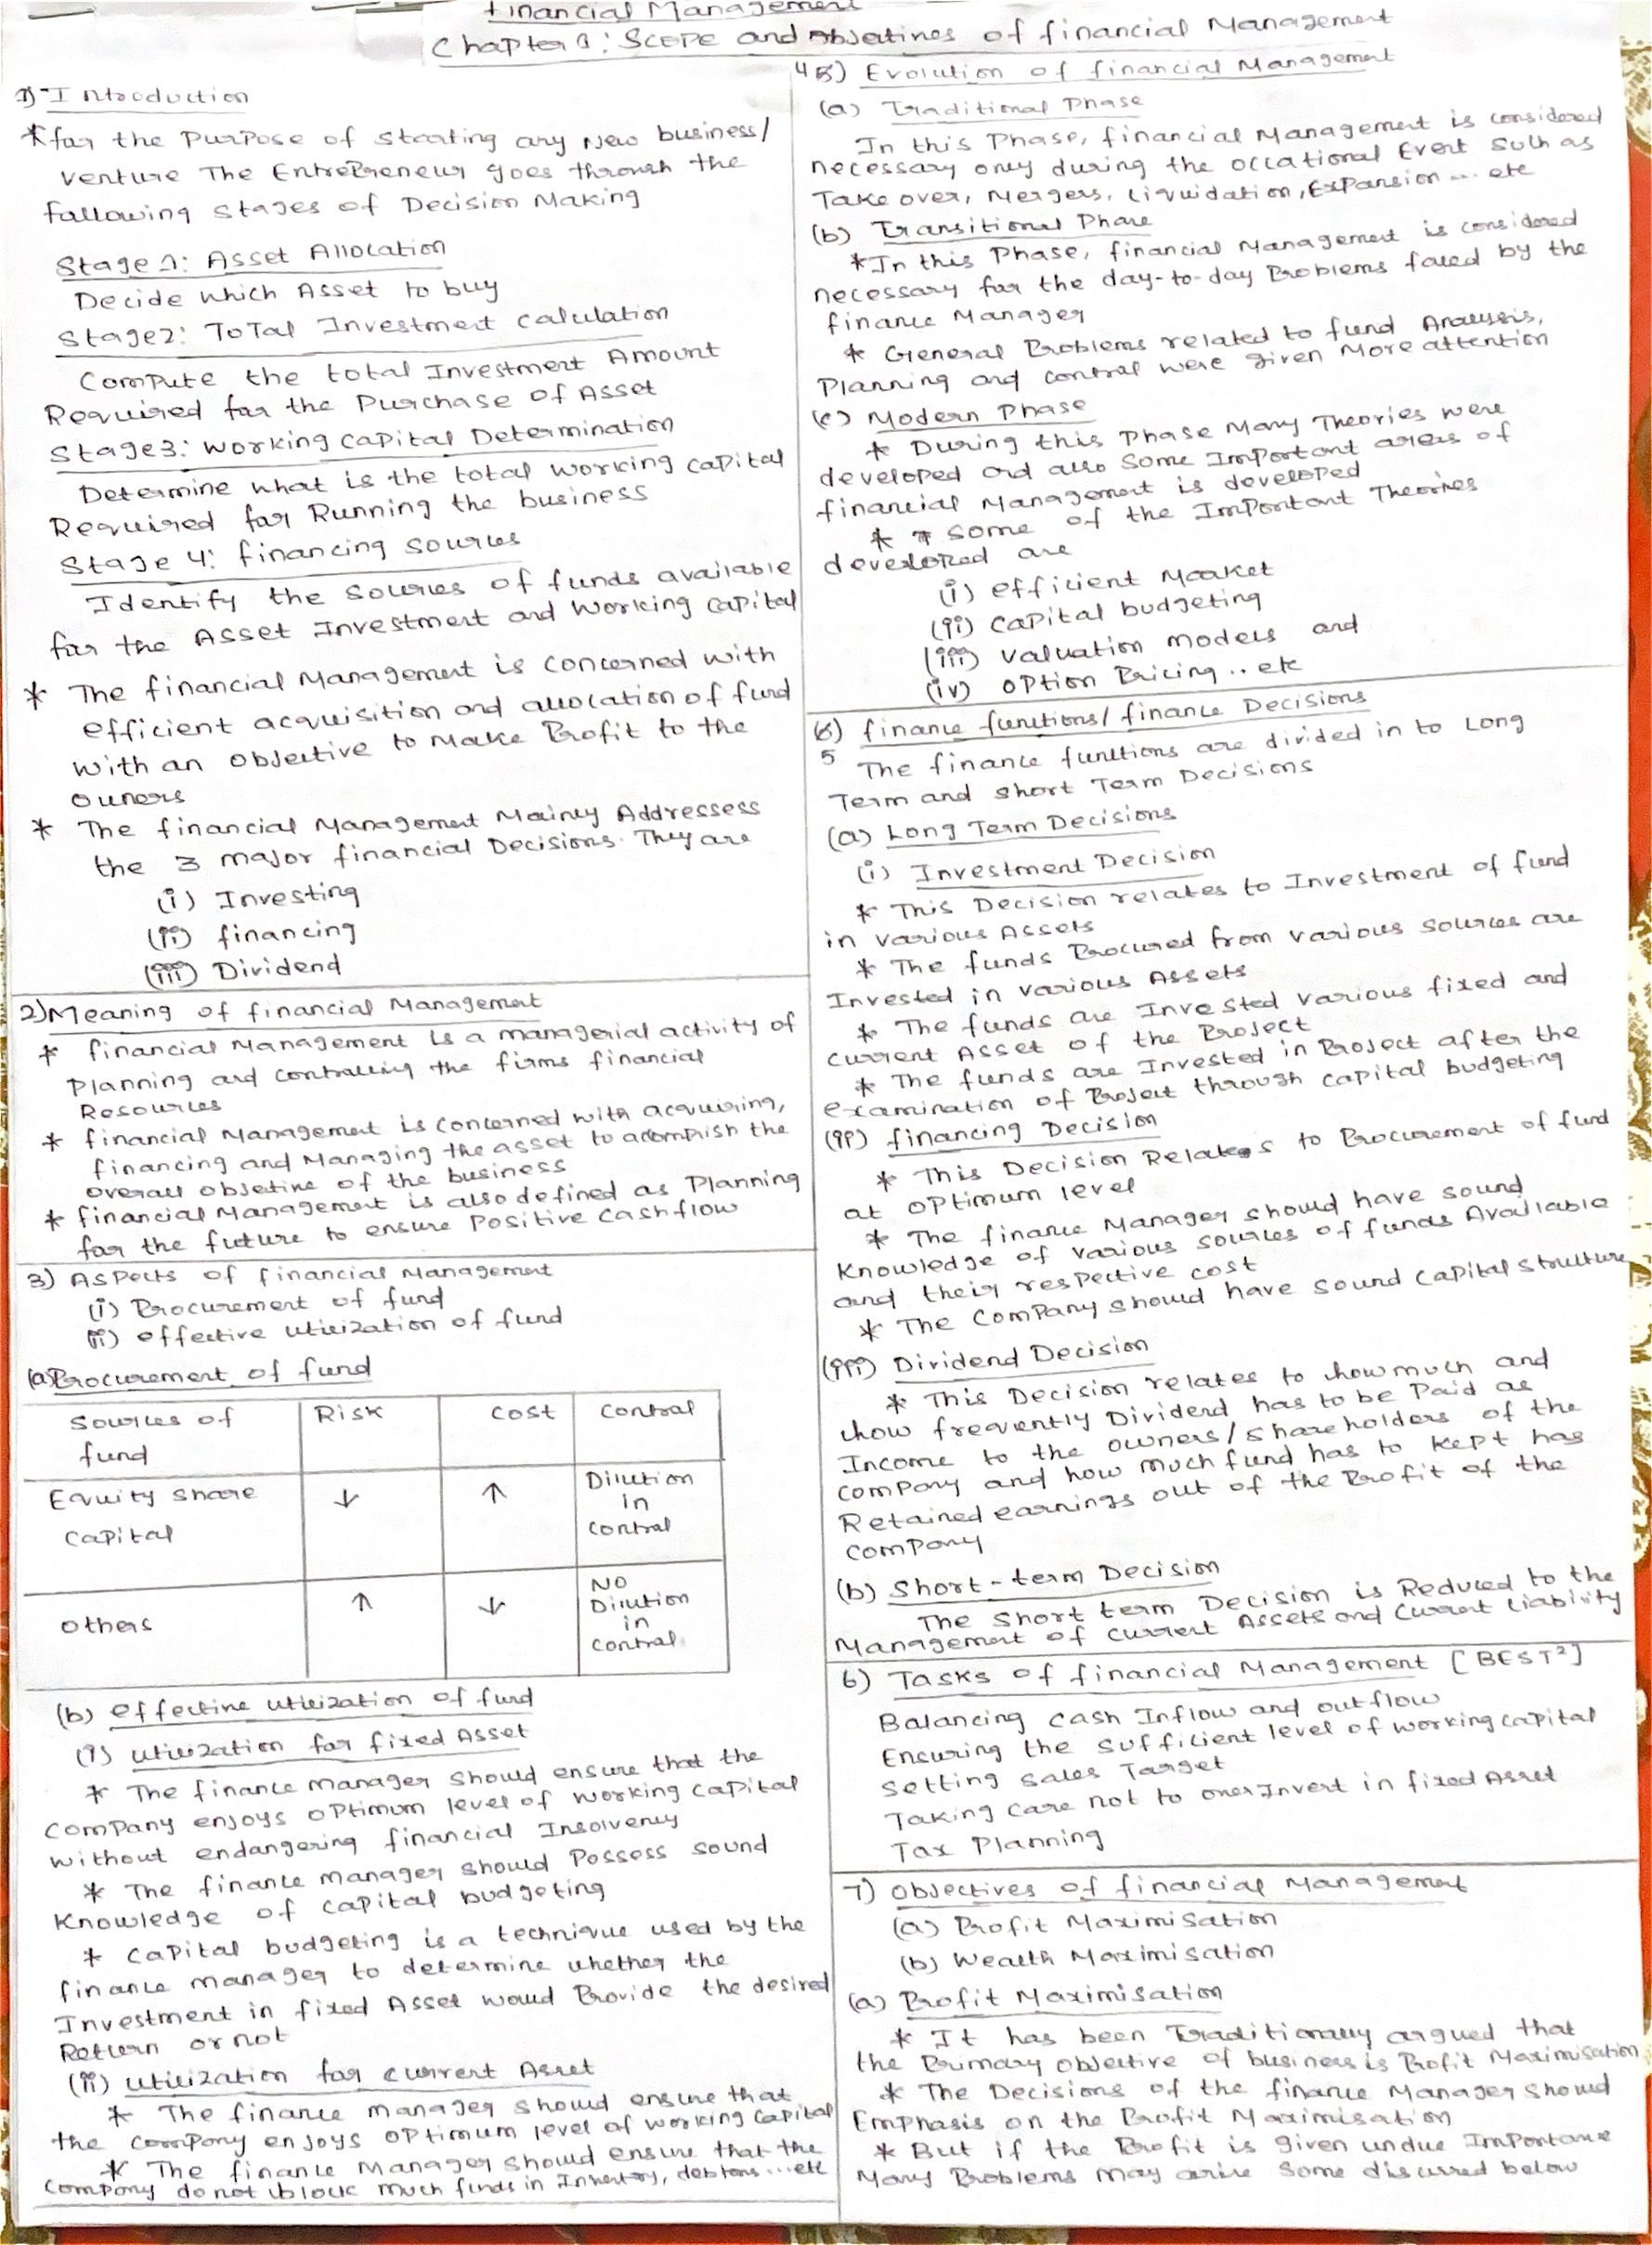 Financial Management
Chapter 1: Scope and Objectives of financial Management
1) Introduction
* for the Purpose of Starting any New business/
Venture The Entrepreneur goes through the
following stages of Decision Making
Stage 1: Asset Allocation
Decide which Asset to buy
Stage 2: Total Investment calculation
Compute the total Investment Amount
Required for the Purchase of Asset
Stage 3: Working Capital Determination
Determine what is the total working capital
Required for Running the business
Stage 4: financing sources
Identify the sources of funds available
for the Asset Investment and Working Capital
* The financial Management is concerned with
efficient acquisition and allocation of fund
with an objective to Make Profit to the
owners
* The financial Management Mainly Addressess
the 3 major financial Decisions. They are
(i) Investing
(ii) financing
(iii) Dividend
2) Meaning of financial Management
* financial Management is a managerial activity of
Planning and controlling the firms financial
Resources
* financial Management is concerned with acquiring,
financing and Managing the asset to accomplish the
overall objective of the business
* financial Management is also defined as Planning
for the future to ensure Positive Cashflow
3) Aspects of financial Management
(i) Procurement of fund
(ii) effective utilization of fund
(a) Procurement of fund
Sources of fund Risk Cost Control
Equity Share Capital ↓ ↑ Dilution in control
Others ↑ ↓ NO Dilution in control
(b) effective utilization of fund
(i) utilization for fixed Asset
* The finance manager should ensure that the
company enjoys optimum level of working capital
without endangering financial Insolvency
* The finance manager should Possess sound
Knowledge of capital budgeting
* Capital budgeting is a technique used by the
finance manager to determine whether the
Investment in fixed Asset would Provide the desired
Return or not
(ii) utilization for current Asset
* The finance manager should ensure that
the company enjoys optimum level of working capital
* The finance Manager should ensure that the
company do not block much funds in Inventory, debtors...etc
4) Evolution of financial Management
(a) Traditional Phase
In this Phase, financial Management is considered
necessary only during the occational Event such as
Take over, Mergers, Liquidation, Expansion... etc
(b) Transitional Phase
* In this Phase, financial Management is considered
necessary for the day-to-day Problems faced by the
finance Manager
* General Problems related to fund Analysis,
Planning and control were given More attention
(c) Modern Phase
* During this Phase Many Theories were
developed and also some Important areas of
financial Management is developed
* some of the Important Theories
developed are
(i) efficient Market
(ii) Capital budgeting
(iii) Valuation models and
(iv) Option Pricing.. etc
5) finance functions/ finance Decisions
The finance functions are divided in to Long
Term and Short Term Decisions
(a) Long Term Decisions
(i) Investment Decision
* This Decision relates to Investment of fund
in various Assets
* The funds Procured from various sources are
Invested in various Assets
* The funds are Invested various fixed and
current Asset of the Project
* The funds are Invested in Project after the
examination of Project through capital budgeting
(ii) financing Decision
* This Decision Relates to Procurement of fund
at optimum level
* The finance Manager should have sound
Knowledge of various sources of funds Available
and their respective cost
* The Company should have sound capital structure
(iii) Dividend Decision
* This Decision relates to how much and
how frequently Dividend has to be Paid as
Income to the owners/shareholders of the
company and how much fund has to kept has
Retained earnings out of the Profit of the
company
(b) Short-term Decision
The Short term Decision is Reduced to the
Management of current Assets and Current Liability
6) Tasks of financial Management [BEST²]
Balancing cash Inflow and outflow
Ensuring the sufficient level of working capital
Setting Sales Target
Taking care not to over Invert in fixed Asset
Tax Planning
7) Objectives of financial Management
(a) Profit Maximisation
(b) Wealth Maximisation
(a) Profit Maximisation
* It has been Traditionally argued that
the Primary objective of business is Profit Maximisation
* The Decisions of the finance Manager should
Emphasis on the Profit Maximisation
* But if the Profit is given undue Importance
Many Problems may arise some discussed below